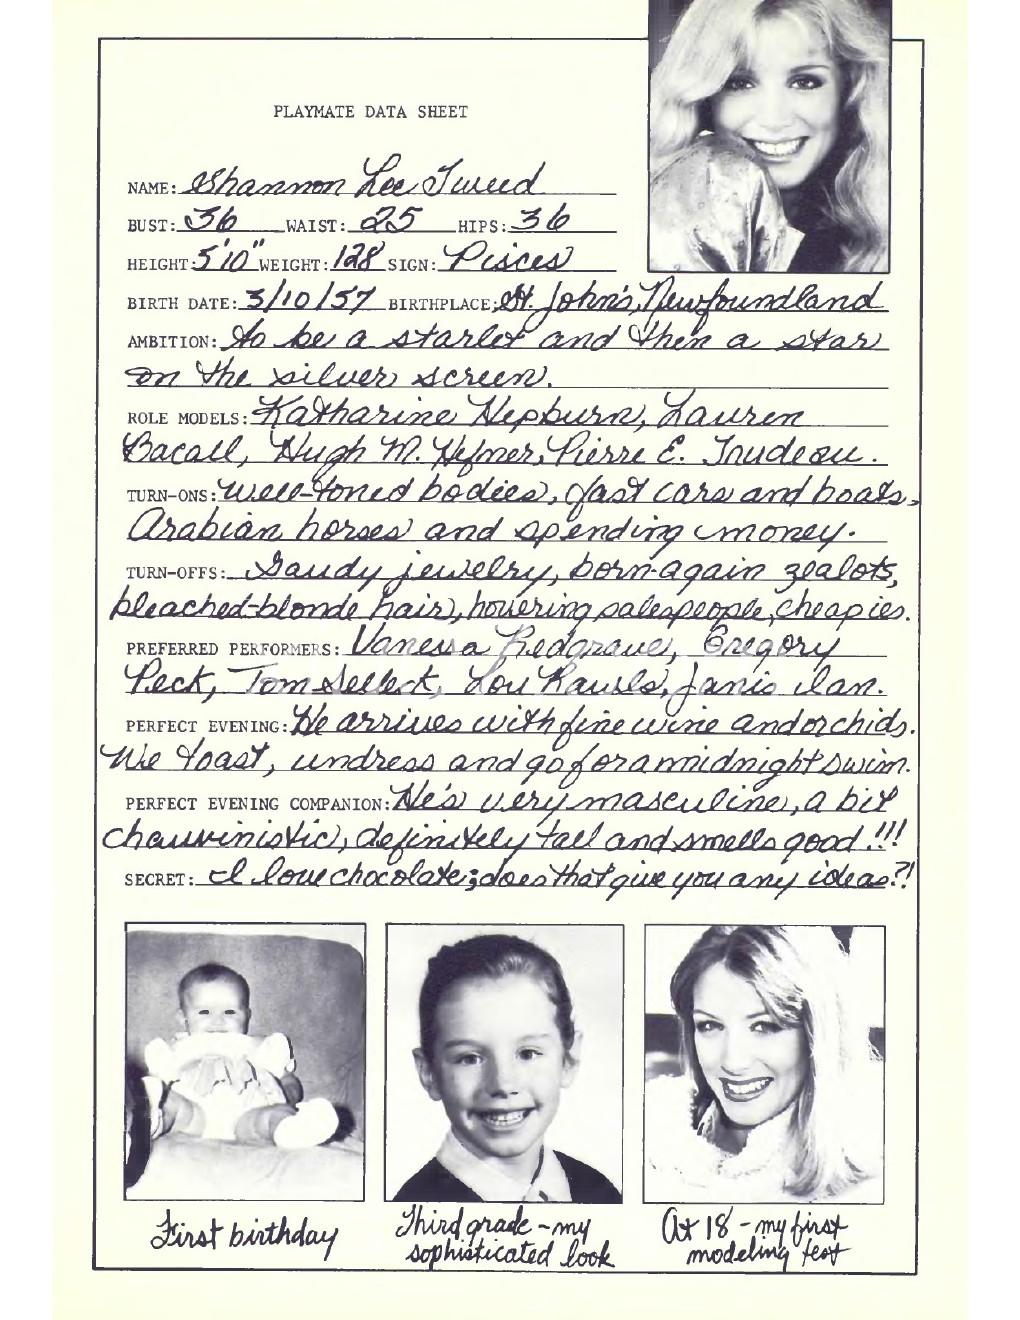 PLAYMATE DATA SHEET
NAME: Shannon Lee Tweed
BUST: 36 WAIST: 25 HIPS: 36
HEIGHT: 5'10" WEIGHT: 128 SIGN: Pisces
BIRTH DATE: 3/10/57 BIRTHPLACE: St. John's, Newfoundland
AMBITION: to be a starlet and then a star
on the silver screen.
ROLE MODELS: Katharine Hepburn, Lauren
Bacall, Hugh M. Hefner, Pierre E. Trudeau.
TURN-ONS: Well-toned bodies, fast cars and boats,
Arabian horses and spending money.
TURN-OFFS: Gaudy jewelry, born-again zealots,
bleached-blonde hair, hovering salespeople, cheapies.
PREFERRED PERFORMERS: Vanessa Redgrave, Gregory
Peck, Tom Selleck, Lou Rawls, Janis Ian.
PERFECT EVENING: He arrives with fine wine and orchids.
We toast, undress and go for a midnight swim.
PERFECT EVENING COMPANION: He's very masculine, a bit
chauvinistic, definitely tall and smells good!!!
SECRET: I love chocolate; does that give you any ideas?!
First birthday
Third grade - my
sophisticated look
At 18 - my first
modeling test